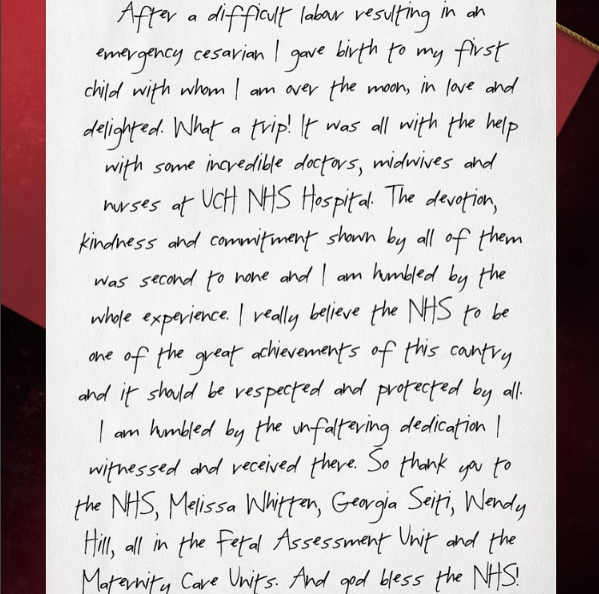 After a difficult labour resulting in an
emergency cesarian I gave birth to my first
child with whom I am over the moon, in love and
delighted. What a trip! It was all with the help
with some incredible doctors, midwives and
nurses at UCH NHS Hospital. The devotion,
kindness and commitment shown by all of them
was second to none and I am humbled by the
whole experience. I really believe the NHS to be
one of the great achievements of this country
and it should be respected and protected by all.
I am humbled by the unfaltering dedication I
witnessed and received there. So thank you to
the NHS, Melissa Whitten, Georgia Seiti, Wendy
Hill, all in the Fetal Assessment Unit and the
Maternity Care Units. And god bless the NHS!